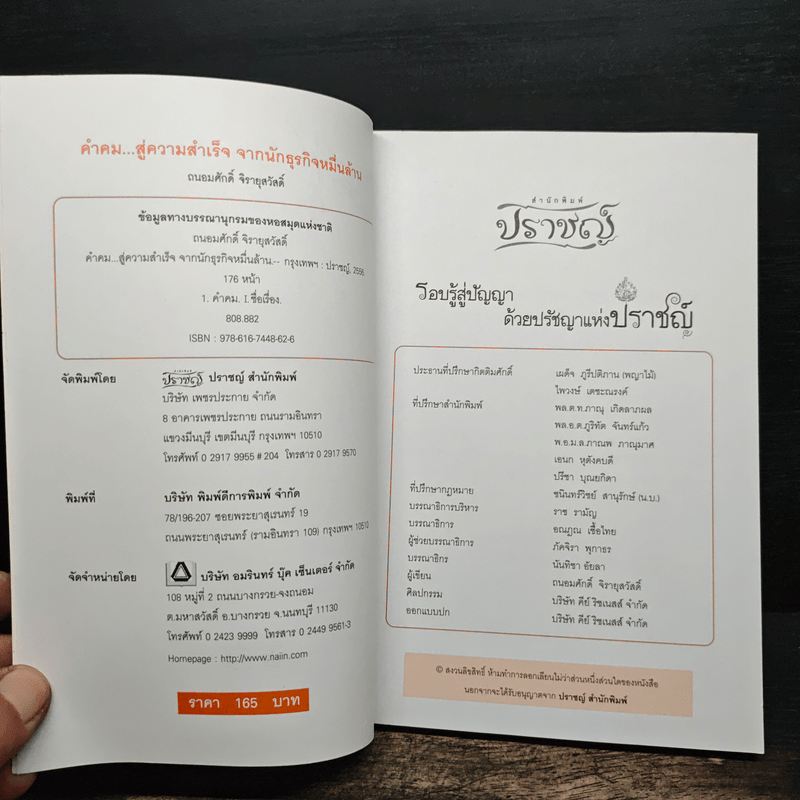 คำคม...สู่ความสำเร็จ จากนักธุรกิจหมื่นล้าน
ถนอมศักดิ์ จิรายุสวัสดิ์
ข้อมูลทางบรรณานุกรมของหอสมุดแห่งชาติ
ถนอมศักดิ์ จิรายุสวัสดิ์
คำคม...สู่ความสำเร็จ จากนักธุรกิจหมื่นล้าน.-- กรุงเทพฯ : ปราชญ์, 2556
176 หน้า
1. คำคม. I.ชื่อเรื่อง.
808.882
ISBN : 978-616-7448-62-6
จัดพิมพ์โดย
สำนักพิมพ์ ปราชญ์ ปราชญ์ สำนักพิมพ์
บริษัท เพชรประกาย จำกัด
8 อาคารเพชรประกาย ถนนรามอินทรา
แขวงมีนบุรี เขตมีนบุรี กรุงเทพฯ 10510
โทรศัพท์ 0 2917 9955 # 204 โทรสาร 0 2917 9570
พิมพ์ที่ บริษัท พิมพ์ดีการพิมพ์ จำกัด
78/196-207 ซอยพระยาสุเรนทร์ 19
ถนนพระยาสุเรนทร์ (รามอินทรา 109) กรุงเทพฯ 10510
จัดจำหน่ายโดย บริษัท อมรินทร์ บุ๊ค เซ็นเตอร์ จำกัด
108 หมู่ที่ 2 ถนนบางกรวย-จงถนอม
ต.มหาสวัสดิ์ อ.บางกรวย จ.นนทบุรี 11130
โทรศัพท์ 0 2423 9999 โทรสาร 0 2449 9561-3
Homepage : http://www.naiin.com
ราคา 165 บาท
สำนักพิมพ์
ปราชญ์
รอบรู้สู่ปัญญา
ด้วยปรัชญาแห่งปราชญ์
ประธานที่ปรึกษากิตติมศักดิ์ เผด็จ ภูรีปติภาน (พญาไม้)
ไพวงษ์ เตชะณรงค์
ที่ปรึกษาสำนักพิมพ์ พล.ต.ท.ภาณุ เกิดลาภผล
พล.อ.ต.ภูริทัต จันทร์แก้ว
พ.อ.ม.ล.ภาณพ ภาณุมาศ
เอนก หุตังคบดี
ปรีชา บุณยกิดา
ที่ปรึกษากฎหมาย ชนินทร์วิชย์ สานุรักษ์ (น.บ.)
บรรณาธิการบริหาร ราช รามัญ
บรรณาธิการ อณฎณ เชื้อไทย
ผู้ช่วยบรรณาธิการ ภัคจิรา พุกาธร
บรรณาธิกร นันทิชา อัยลา
ผู้เขียน ถนอมศักดิ์ จิรายุสวัสดิ์
ศิลปกรรม บริษัท คีย์ ริชเนสส์ จำกัด
ออกแบบปก บริษัท คีย์ ริชเนสส์ จำกัด
© สงวนลิขสิทธิ์ ห้ามทำการลอกเลียนไม่ว่าส่วนหนึ่งส่วนใดของหนังสือ
นอกจากจะได้รับอนุญาตจาก ปราชญ์ สำนักพิมพ์